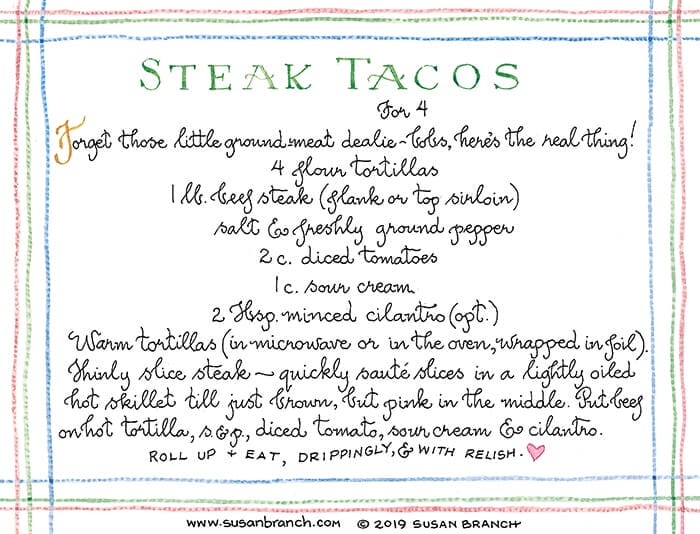 STEAK TACOS
For 4
Forget those little ground-meat dealie-bobs, here's the real thing!
4 flour tortillas
1 lb. beef steak (flank or top sirloin)
salt & freshly ground pepper
2 c. diced tomatoes
1 c. sour cream
2 Tbsp. minced cilantro (opt.)
Warm tortillas (in microwave or in the oven, wrapped in foil).
Thinly slice steak ~ quickly sauté slices in a lightly oiled
hot skillet till just brown, but pink in the middle. Put beef
on hot tortilla, s.&p., diced tomato, sour cream & cilantro.
ROLL UP + EAT, DRIPPINGLY, & WITH RELISH.
www.susanbranch.com © 2019 SUSAN BRANCH